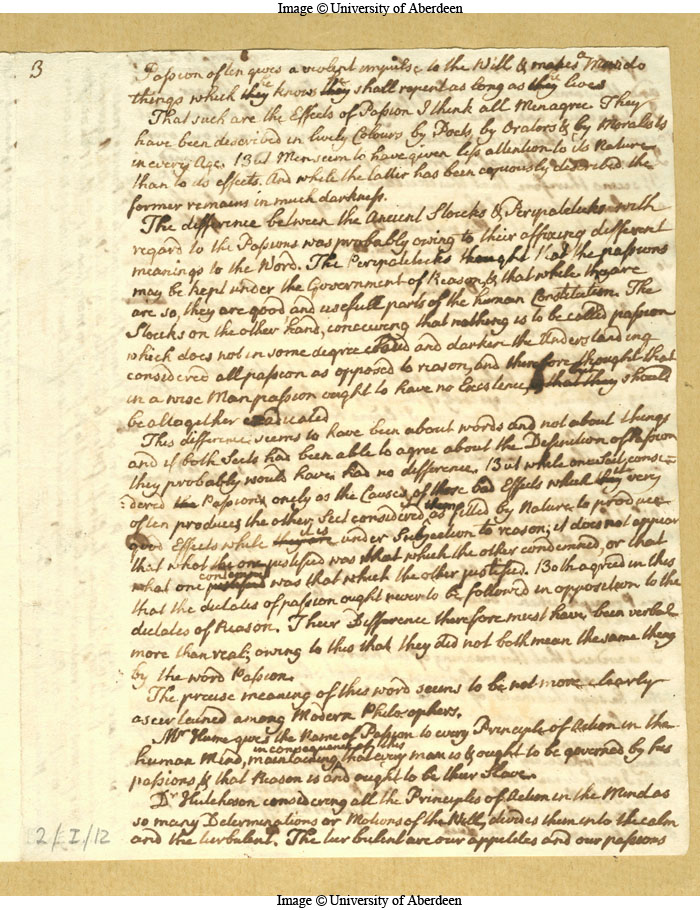 Image © University of Aberdeen
3
Passion often gives a violent impulse to the Will & makes a Man do
things which he knows he shall repent as long as he lives
That such are the Effects of Passion I think all Men agree. They
have been described in lively Colours by Poets, by Orators & by Moralists
in every Age. But Men seem to have given less attention to its Nature
than to its effects. And while the latter has been copiously described the
former remains in much darkness.
The difference between the Ancient Stoicks & Peripateticks with
regard to the Passions was probably owing to their affixing different
meanings to the Word. The Peripateticks thought that the passions
may be kept under the Government of Reason & that while they are
are so, they are good and usefull parts of the human Constitution. The
Stoicks on the other hand, conceiving that nothing is to be called passion
which does not in some degree and darken the Understanding
considered all passion as opposed to reason, and therefore thought that
in a wise Man passion ought to have no Existence, but that they should
be altogether eradicated
This difference seems to have been about words and not about things
and if both Sects had been able to agree about the Definition of Passion
they probably would have had no difference. But while one Sect consi-
dered the Passions onely as the Causes of those bad Effects which they very
often produce the other Sect considered them as fitted by Nature to produce
good Effects while they are under Subjection to reason; it does not appear
that what the one justified was that which the other condemned, or that
what one condemned was that which the other justified. Both agreed in this
that the dictates of passion ought never to be followed in opposition to the
dictates of Reason. Their Difference therefore must have been verbal
more than real; owing to this that they did not both mean the same thing
by the word Passion.
The precise meaning of this word seems to be not more clearly
ascertained among Modern Philosophers.
Mr Hume gives the Name of Passion to every Principle of Action in the
human Mind, in consequence of this maintaining that every man is & ought to be governed by his
passions & that Reason is and ought to be their Slave.
Dr Hutcheson considering all the Principles of Action in the Mind as
so many Determinations or Motions of the Will, divides them into the calm
and the turbulent. The turbulent are our appetites and our passions
2/I/12
Image © University of Aberdeen